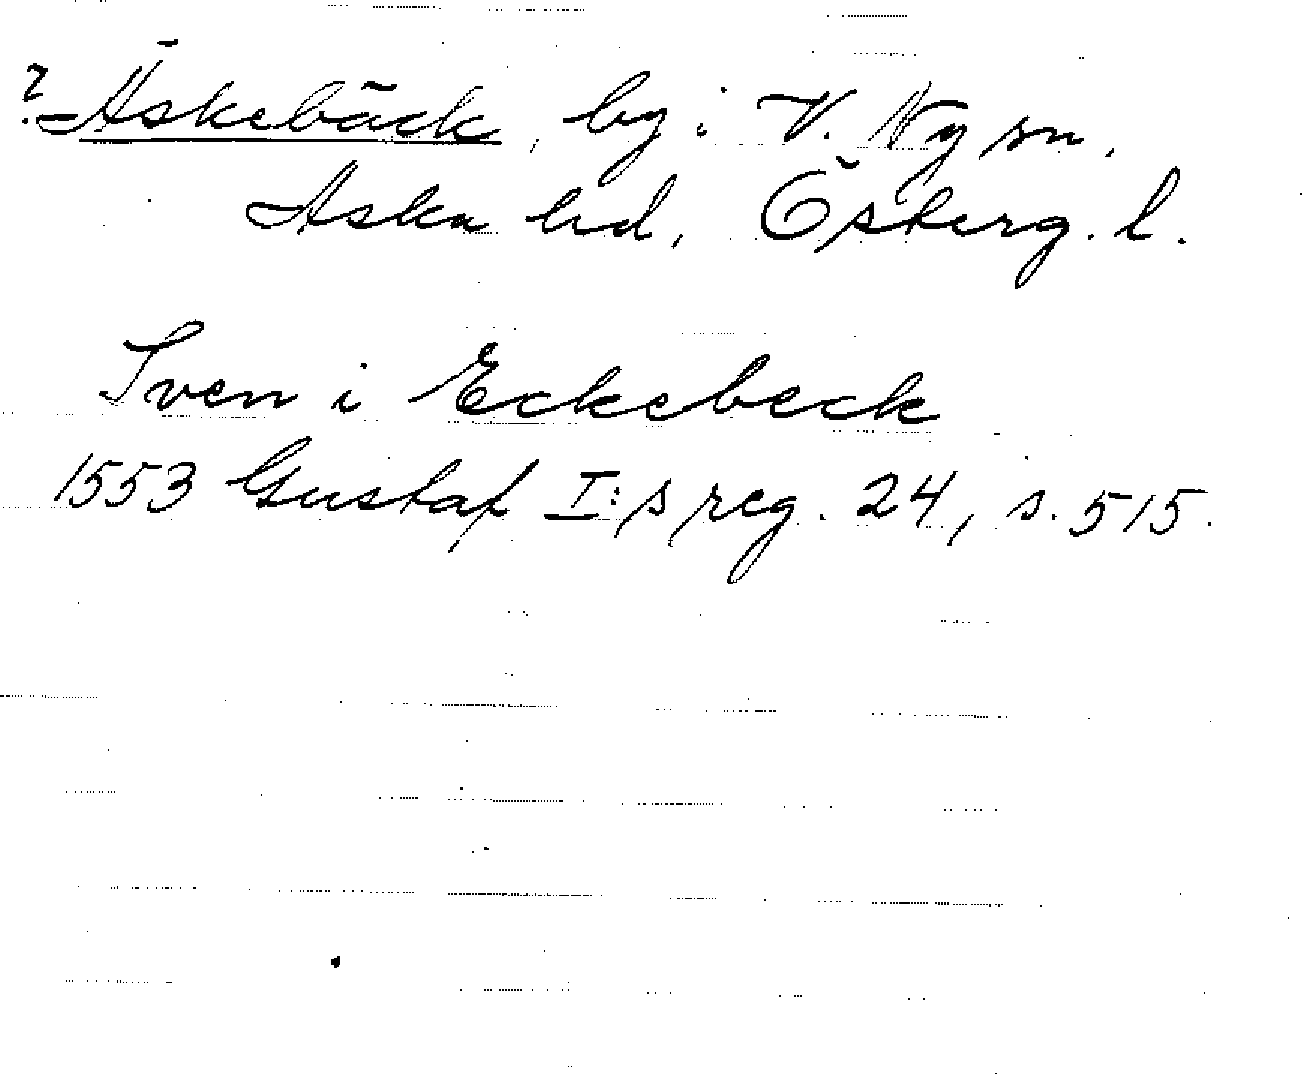 ? Äskebäck, by i V. Ny sn.
Aska hd, Österg. l.
Sven i Eckebeck
1553 Gustaf I:s reg. 24, s. 515.